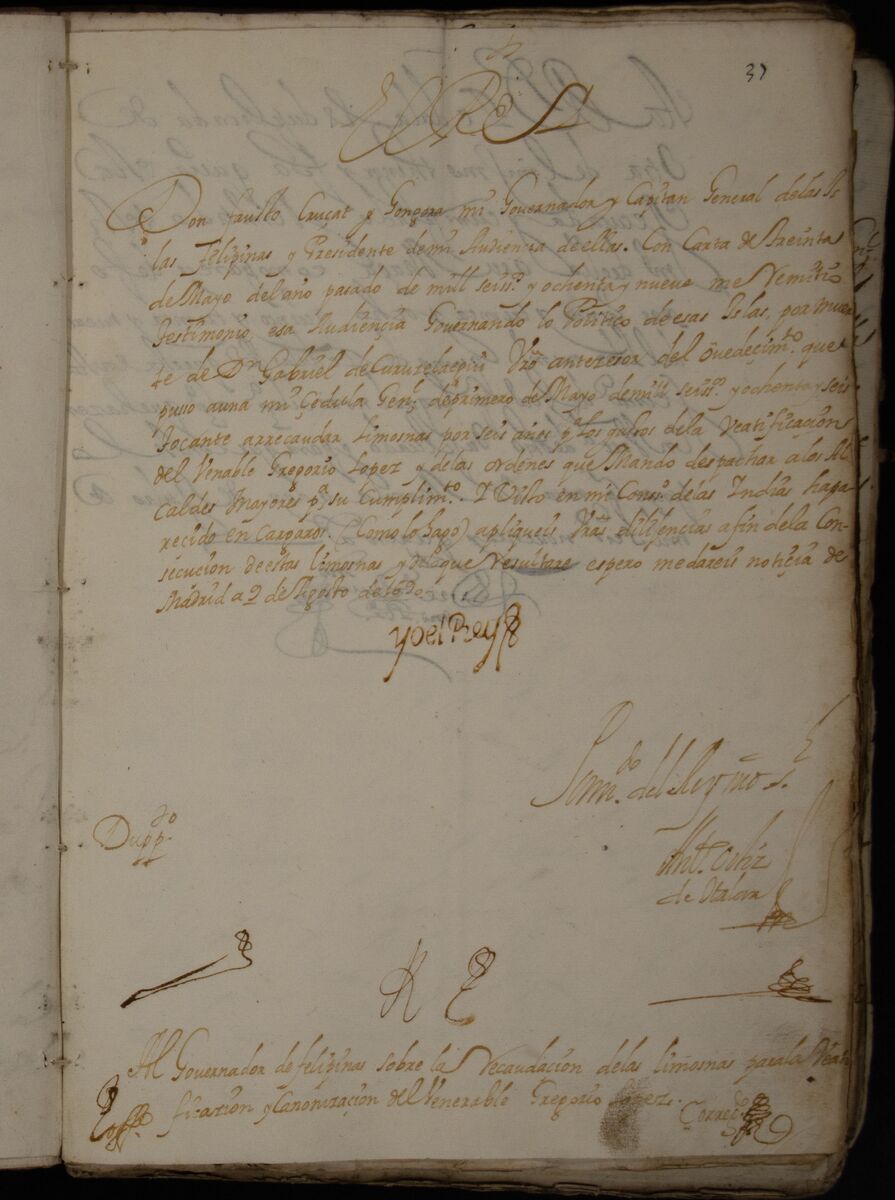 37
El Rey
Don fausto Cruçat y Gongora mi Governador y Capitan General de las Is
las Felipinas y Presidente de mi Audiencia de ellas. Con Carta de treinta
de Mayo del año pasado de mill seisº y ochenta y nueve me Remitio
testimonio esa Audiençia Governando lo Politico de esas Islas, por muer
te de Dn Gabriel de Curuzelaegui Vrõ antezesor del Ovedeçimtº que
pusso a una mi Çedula Genl de primero de Mayo de mill seissº y ochenta y seis
Tocante a rrecaudar limosnas por seis años pª los gastos de la Veatificaçion
del Venable Gregorio Lopez y de las ordenes que Mando despachar a los Al
caldes Mayores pª su Cumplimtº. Y Visto en mi Consº de las Indias ha pa
recido en Cargaros (Como lo hago) apliqueis Vrãs diligencias a fin de la Con-
secucion de estas limosnas y de lo que Resultare espero me dareis notiçia de
Madrid a 9 de Agosto de 1690
Yo el Rey
Por mdo del Rey nro sr
Antº Ortiz
de Otalora
Duppdo
Al Governador de felipinas sobre la Recaudaçion de las limosnas para la Veati
ficacion y Canonizaçion del Venerable Gregorio Lopez.
Corregdo